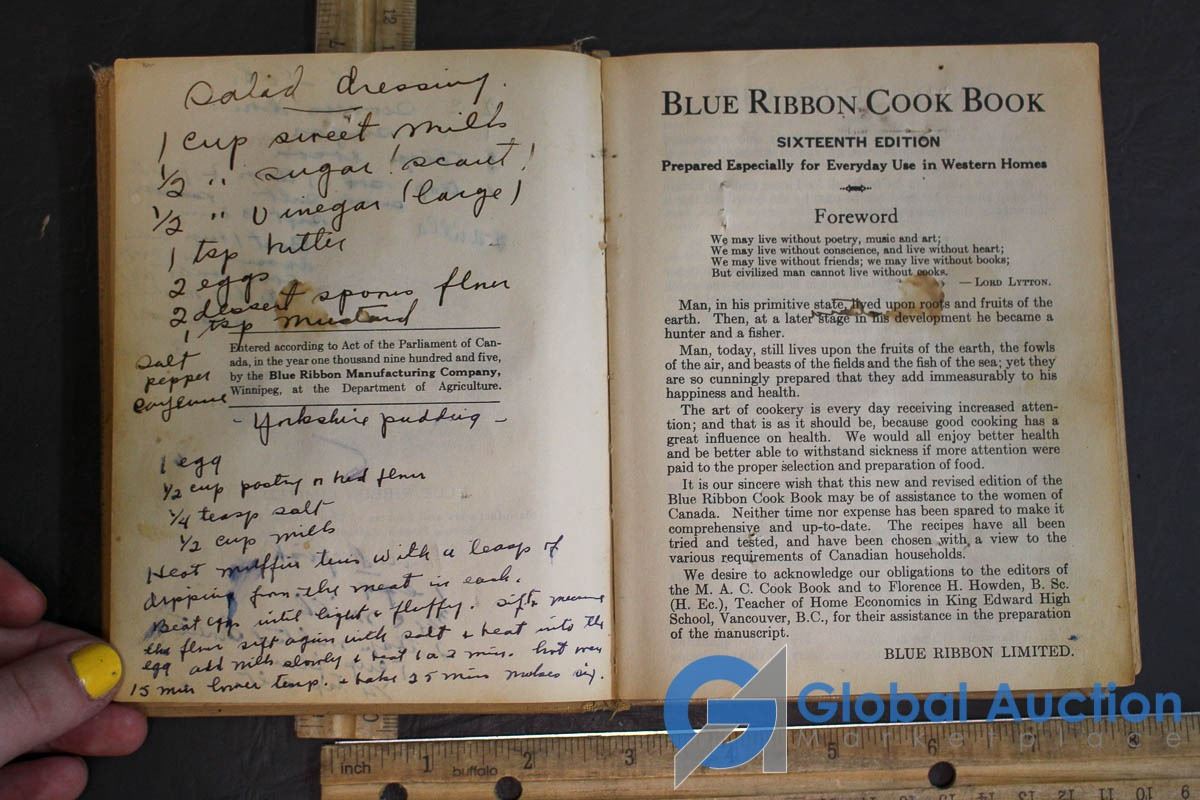 Salad dressing.
1 cup sweet milk
1/2 " sugar (scant)
1/2 " Vinegar (large)
1 tsp butter
2 eggs
2 dessert spoons flour
1 tsp mustard
salt
pepper
cayenne
Entered according to Act of the Parliament of Can-
ada, in the year one thousand nine hundred and five,
by the Blue Ribbon Manufacturing Company,
Winnipeg, at the Department of Agriculture.
- Yorkshire pudding -
1 egg
1/2 cup pastry or bread flour
1/4 teasp salt
1/2 cup milk
Heat muffin tins with a teasp of
dripping from the meat in each.
Beat eggs until light & fluffy. Sift & measure
the flour sift again with salt & beat into the
egg add milk slowly & beat 1 or 2 min. hot oven
15 min lower temp. & bake 25 min makes six.
BLUE RIBBON COOK BOOK
SIXTEENTH EDITION
Prepared Especially for Everyday Use in Western Homes
Foreword
We may live without poetry, music and art;
We may live without conscience, and live without heart;
We may live without friends; we may live without books;
But civilized man cannot live without cooks.
— LORD LYTTON.
Man, in his primitive state, lived upon roots and fruits of the
earth. Then, at a later stage in his development he became a
hunter and a fisher.
Man, today, still lives upon the fruits of the earth, the fowls
of the air, and beasts of the fields and the fish of the sea; yet they
are so cunningly prepared that they add immeasurably to his
happiness and health.
The art of cookery is every day receiving increased atten-
tion; and that is as it should be, because good cooking has a
great influence on health. We would all enjoy better health
and be better able to withstand sickness if more attention were
paid to the proper selection and preparation of food.
It is our sincere wish that this new and revised edition of the
Blue Ribbon Cook Book may be of assistance to the women of
Canada. Neither time nor expense has been spared to make it
comprehensive and up-to-date. The recipes have all been
tried and tested, and have been chosen with a view to the
various requirements of Canadian households.
We desire to acknowledge our obligations to the editors of
the M. A. C. Cook Book and to Florence H. Howden, B. Sc.
(H. Ec.), Teacher of Home Economics in King Edward High
School, Vancouver, B.C., for their assistance in the preparation
of the manuscript.
BLUE RIBBON LIMITED.
Global Auction
Marketplace
inch 1 buffalo 2 3 5 6
12 11 10 9